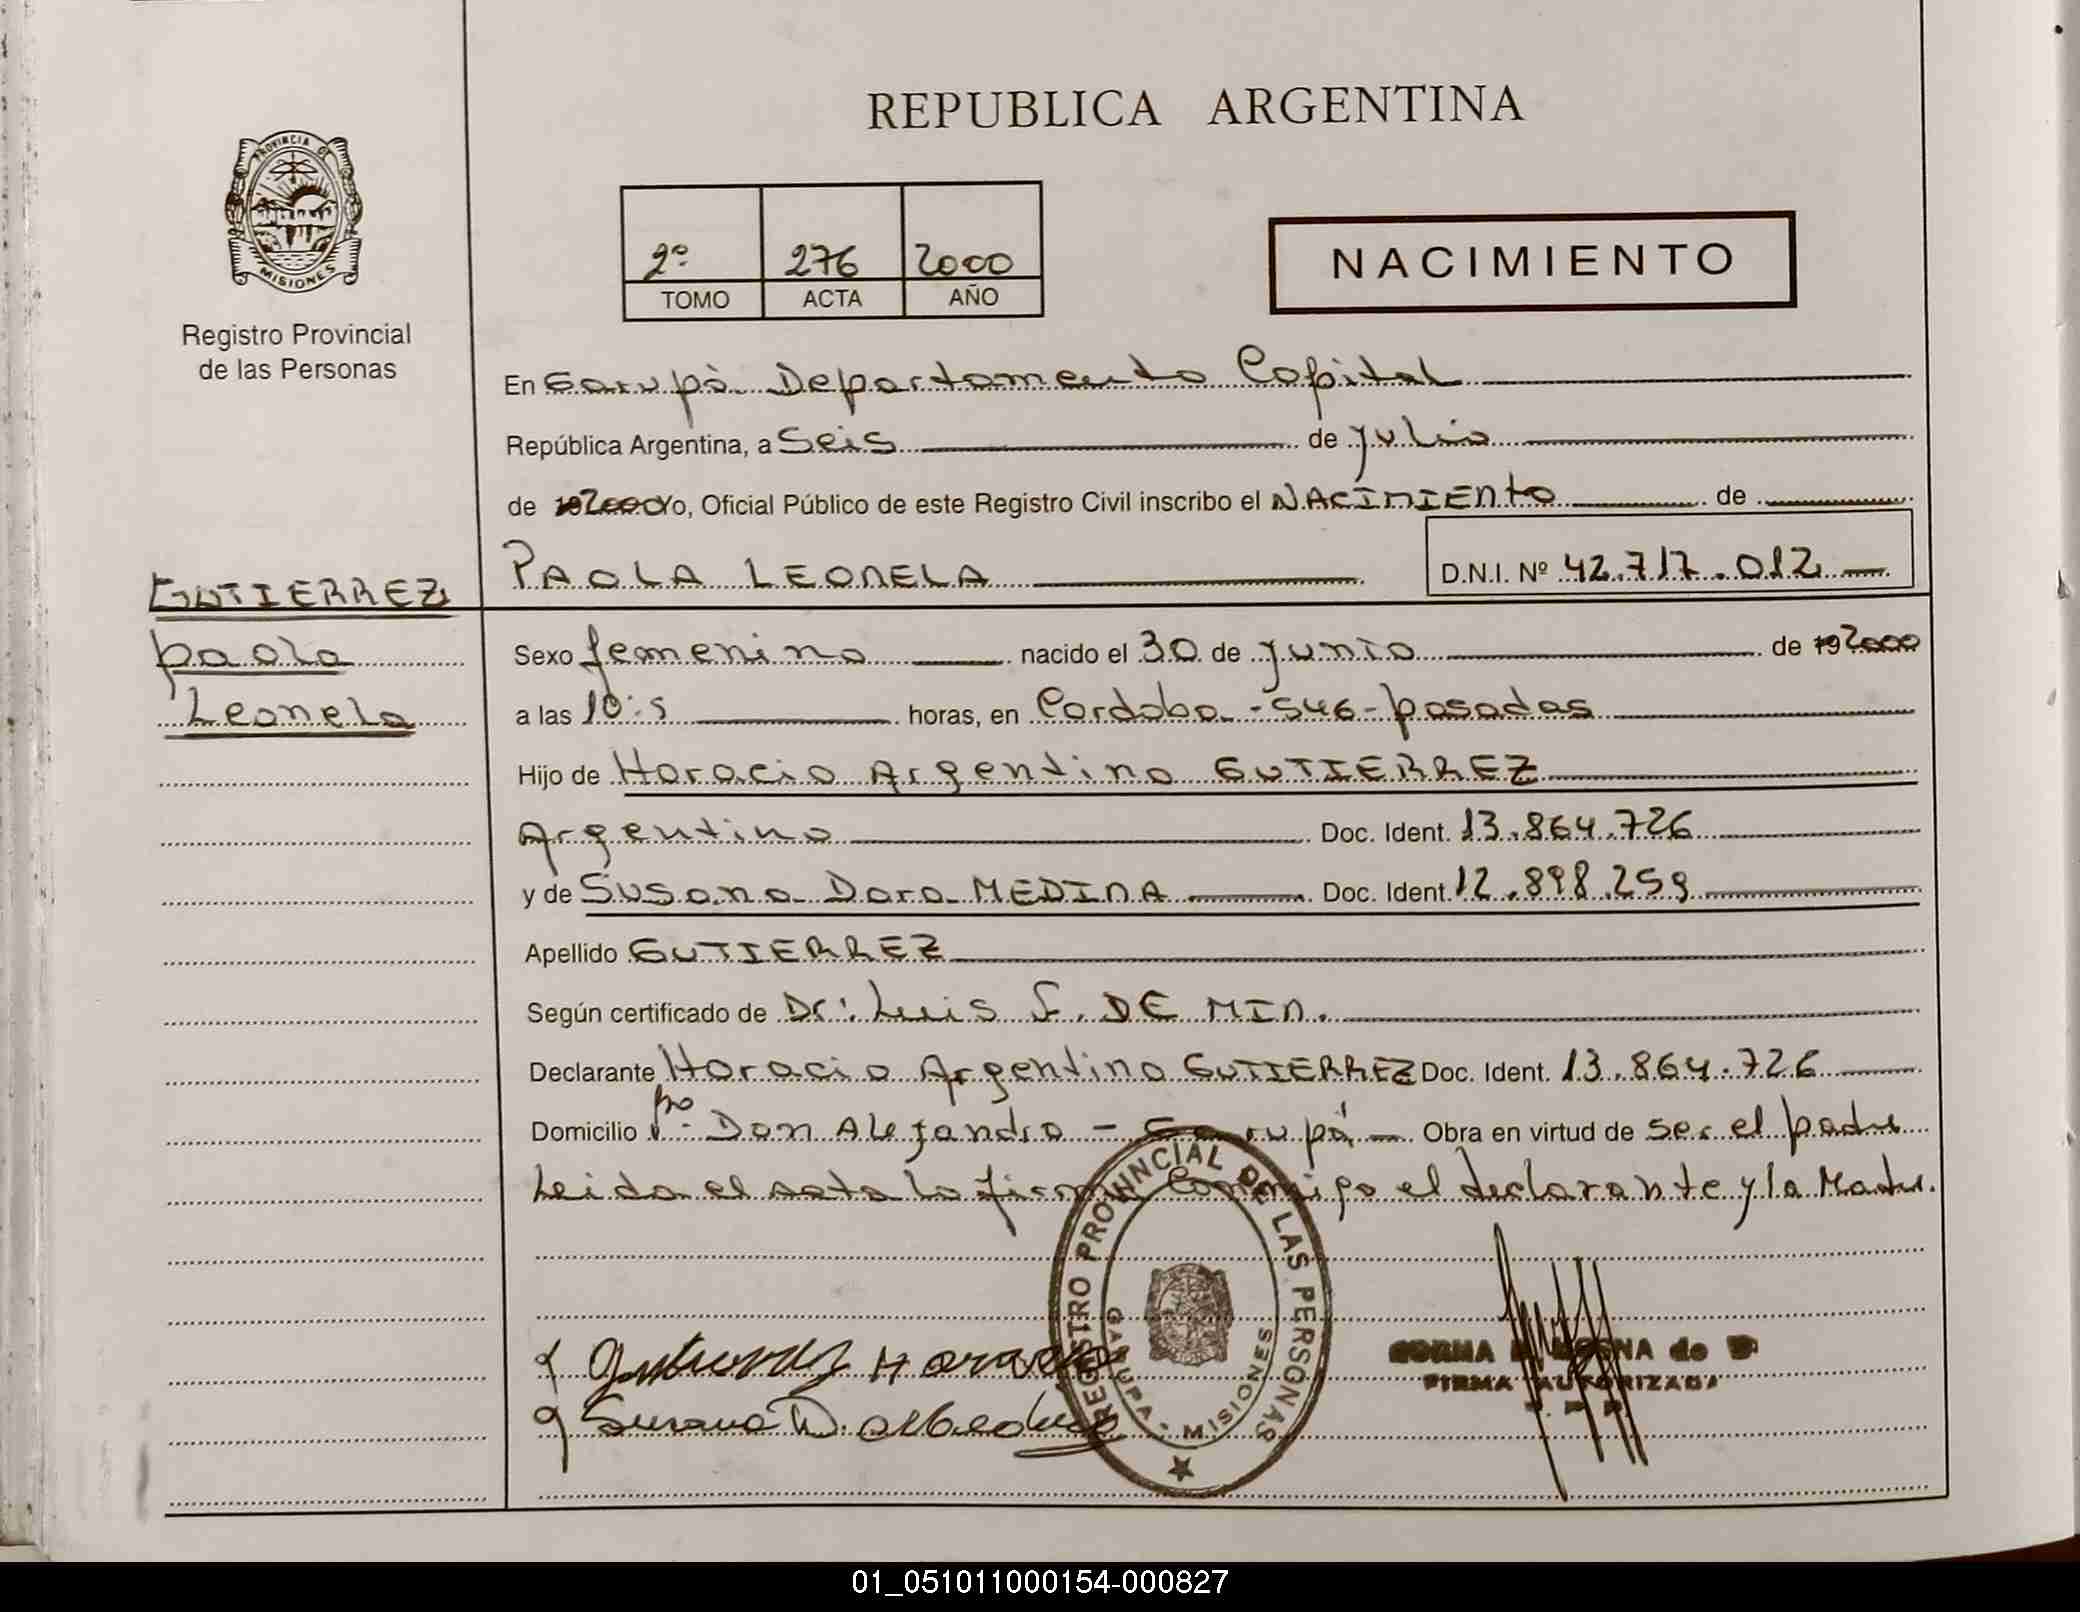 REPUBLICA ARGENTINA
PROVINCIA DE
MISIONES
Registro Provincial
de las Personas
2º 276 2000
TOMO ACTA AÑO
NACIMIENTO
En Garupá Departamento Capital
República Argentina, a Seis de julio
de 2000 Yo, Oficial Público de este Registro Civil inscribo el NACIMIENto de
PAOLA LEONELA D.N.I. Nº 42.717.012
GUTIERREZ
paola
Leonela
Sexo femenino nacido el 30 de junio de 19 2000
a las 10:5 horas, en Cordoba - 546 - posadas
Hijo de Horacio Argentino GUTIERREZ
Argentino Doc. Ident. 13.864.726
y de Susana Dora MEDINA Doc. Ident. 12.898.259
Apellido GUTIERREZ
Según certificado de Dr: Luis S. DE MIN.
Declarante Horacio Argentino GUTIERREZ Doc. Ident. 13.864.726
Domicilio Don Alejandro - Garupá Obra en virtud de ser el padre
Leida el acta la firma conmigo el declarante y la Madre.
REGISTRO PROVINCIAL DE LAS PERSONAS
GARUPA - MISIONES
Gutierrez Horacio
Susana D.
FIRMA AUTORIZADA
01_051011000154-000827